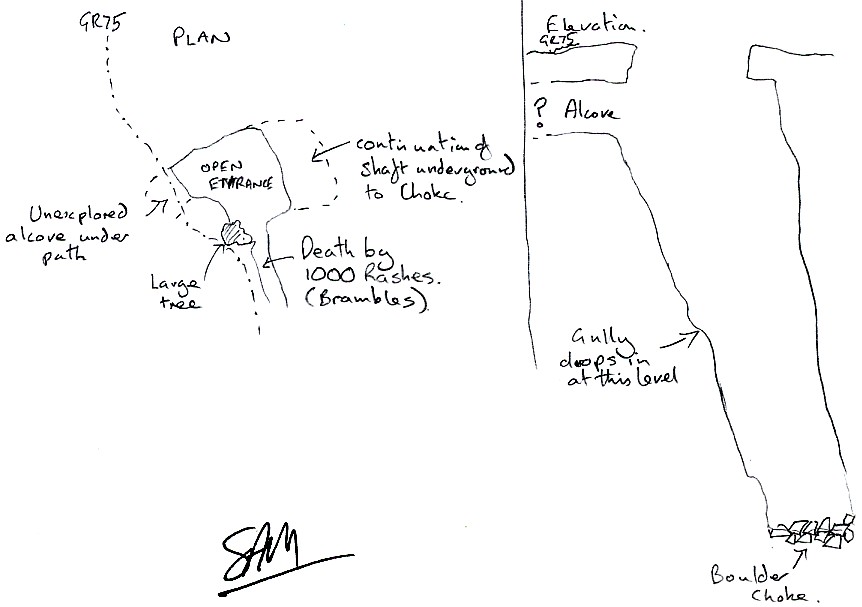 GR75
PLAN
OPEN
ENTRANCE
continuation of
shaft underground
to Choke.
Unexplored
alcove under
path
Large
tree
Death by
1000 Rashes.
(Brambles).
SAM
Elevation.
GR75
? Alcove
Gully
drops in
at this level
Boulder
Choke.